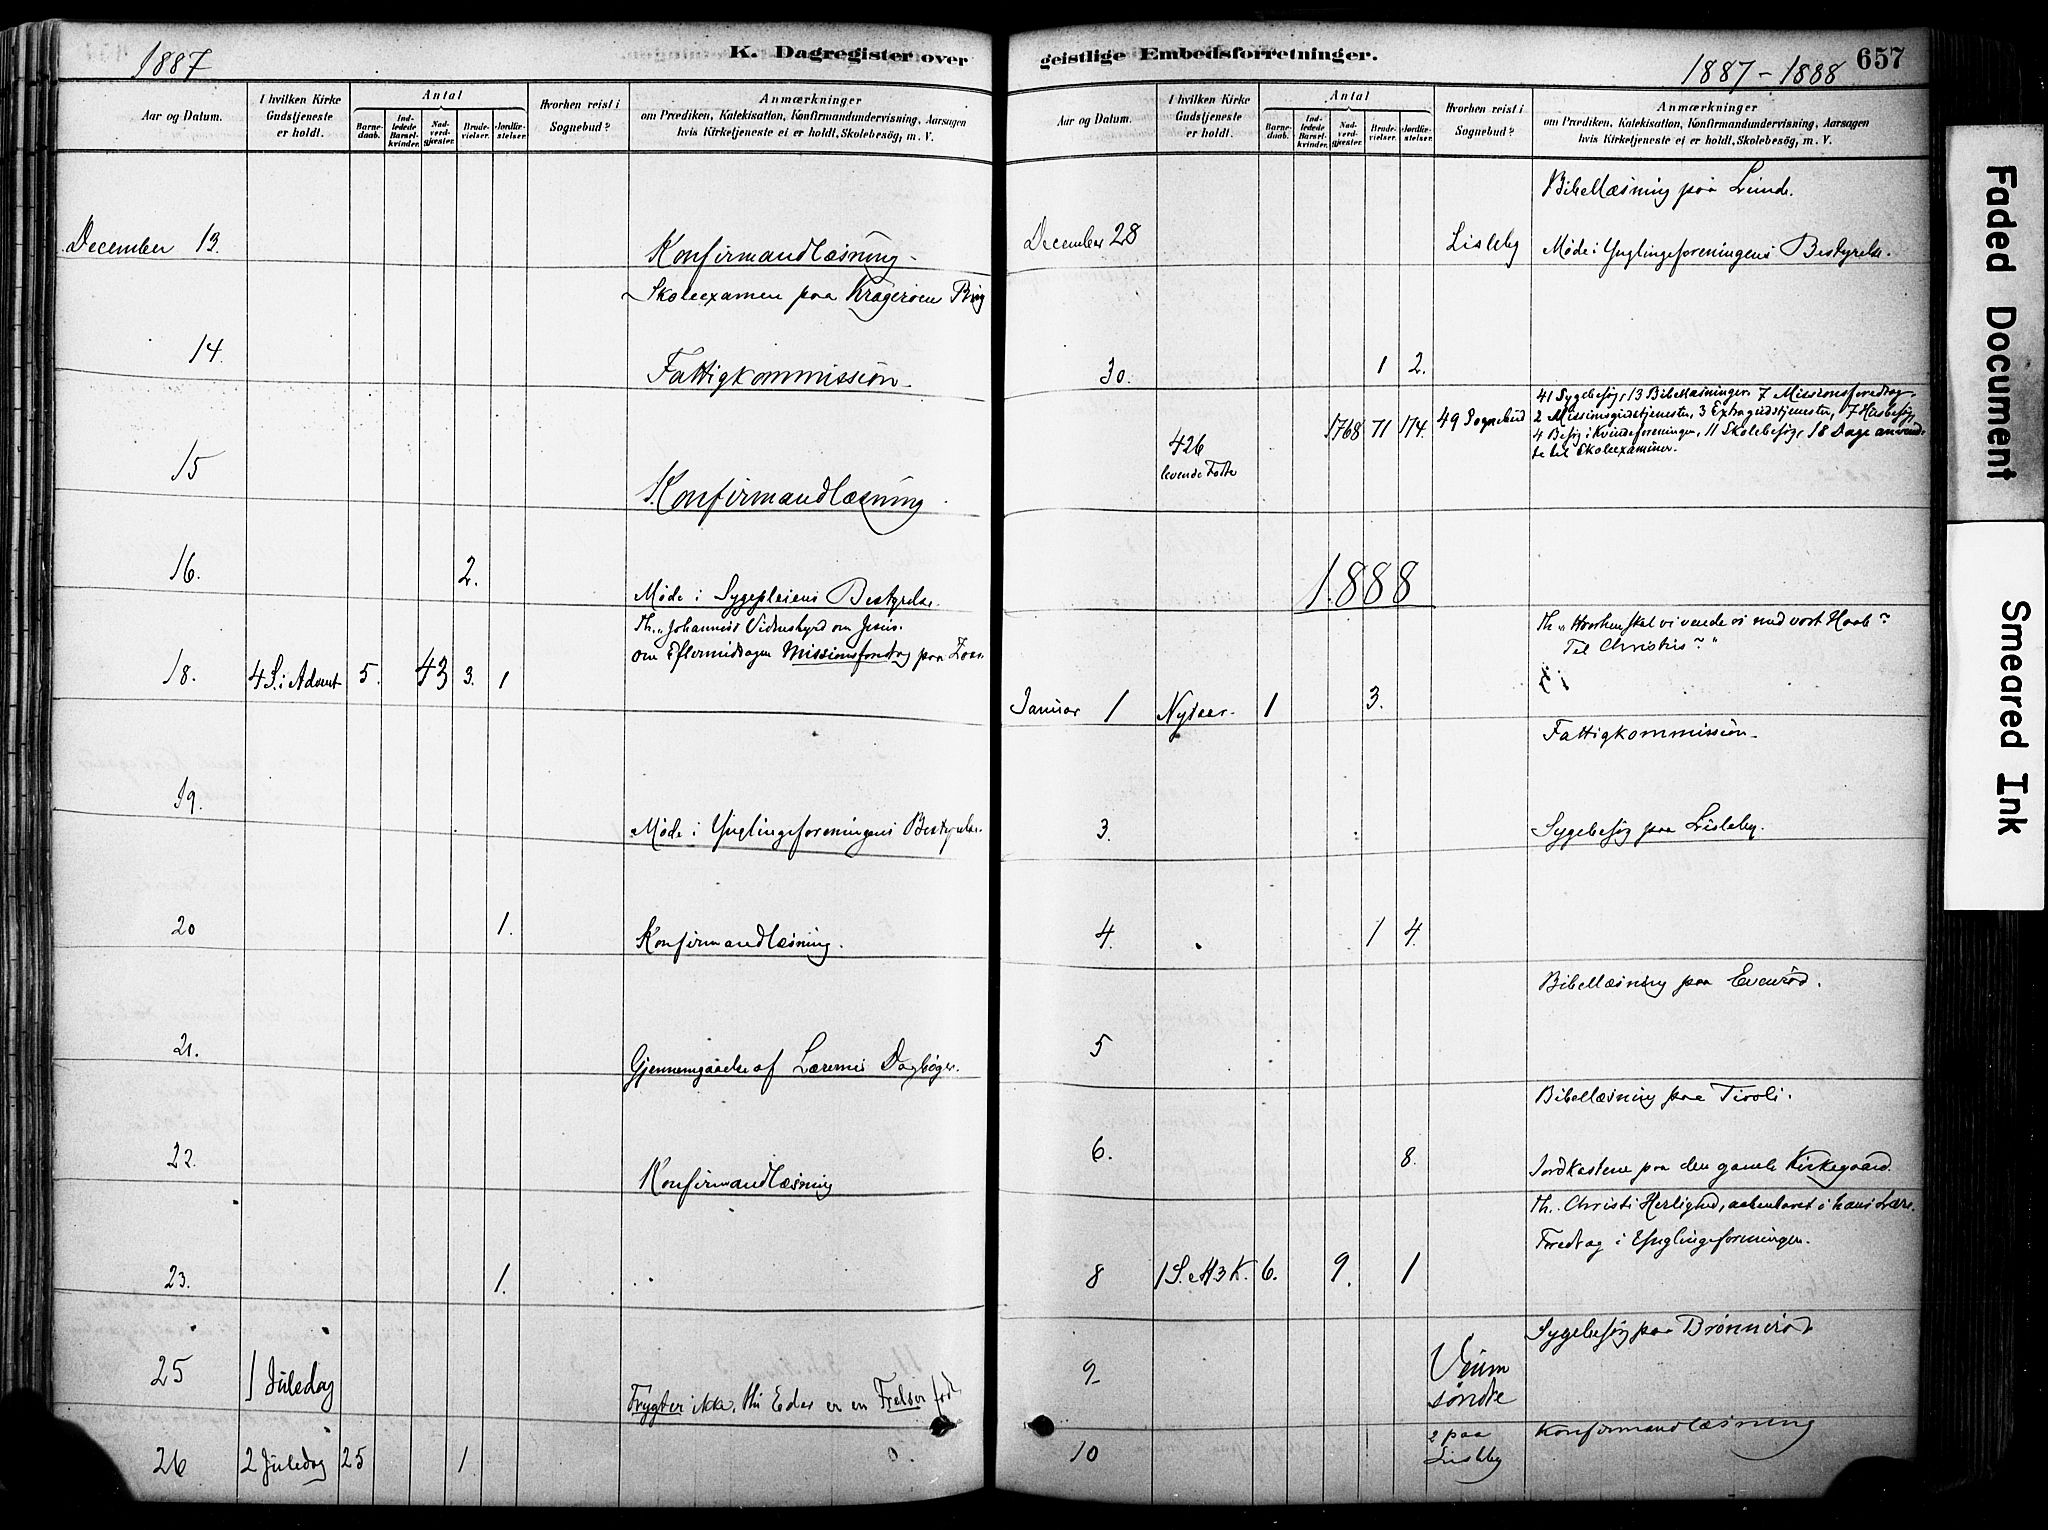 1887
K. Dagregister over
geistlige Embedsforretninger.
1887-1888
657
Aar og Datum.
I hvilken Kirke Gudstjeneste er holdt.
Antal
Barnedaab.
Indledede Barselkvinder.
Nadverdgjæster.
Brudevielser.
Jordfæstelser.
Hvorhen reist i Sognebud?
Anmærkninger
om Prædiken, Katekisation, Konfirmandundervisning, Aarsagen
hvis Kirketjeneste ei er holdt, Skolebesög, m. V.
December 13.
Konfirmandlæsning
Skoleexamen paa Kragerøen
14.
Fattigkommission.
15
Konfirmandlæsning
16.
2.
Møde i Sygepleiens Bestyrelse.
Th. "Johannes's Vidnesbyrd om Jesus.
om Eftermiddagen Missionsforedrag paa
18. 4 S. i Advent 5. 43 3. 1
19.
Møde i Ynglingeforeningens Bestyrelse.
20
1.
Konfirmandlæsning.
21.
Gjennemgaaelse af Lærernes Dagbøger.
22.
Konfirmandlæsning
23.
1.
25 1 Juledag
Frygter ikke. Thi Eder er en Frelser født
26 2 Juledag 25 1
Aar og Datum.
I hvilken Kirke Gudstjeneste er holdt.
Antal
Barnedaab.
Indledede Barselkvinder.
Nadverdgjæster.
Brudevielser.
Jordfæstelser.
Hvorhen reist i Sognebud?
Anmærkninger
om Prædiken, Katekisation, Konfirmandundervisning, Aarsagen
hvis Kirketjeneste ei er holdt, Skolebesög, m. V.
Bibellæsning paa Lunde.
December 28
Lisleby
Møde i Ynglingeforeningens Bestyrelse.
30. 1 2.
426
levende Fødte
1768 71 174. 49 Sognebud
41 Sygebesøg, 13 Bibellæsninger. 7 Missionsforedrag
2 Missionsgudstjenester, 3 Extragudstjenester, 7 Husbesøg,
4 Besøg i Kvindeforeningen, 11 Skolebesøg, 18 Dage anvend-
te til Skoleexaminer.
1888
Th. "Hvorhen skal vi vende os med vort Haab?
Til Christus?"
Januar 1 Nytaar. 1 3.
Fattigkommission.
3.
Sygebesøg paa Lisleby.
4. 1 4.
Bibellæsning paa Evenrød.
5
Bibellæsning paa Tivoli.
6. 8.
Jordkastene paa den gamle Kirkegaard.
Th. Christi Herlighed, aabenbaret i hans Lære.
Foredrag i Ynglingeforeningen.
8 1 S. e H 3 K. 6. 9. 1
Sygebesøg paa Brønnerød
9
Veum
søndre
10
2 paa
Lisleby
Konfirmandlæsning
Faded Document
Smeared Ink